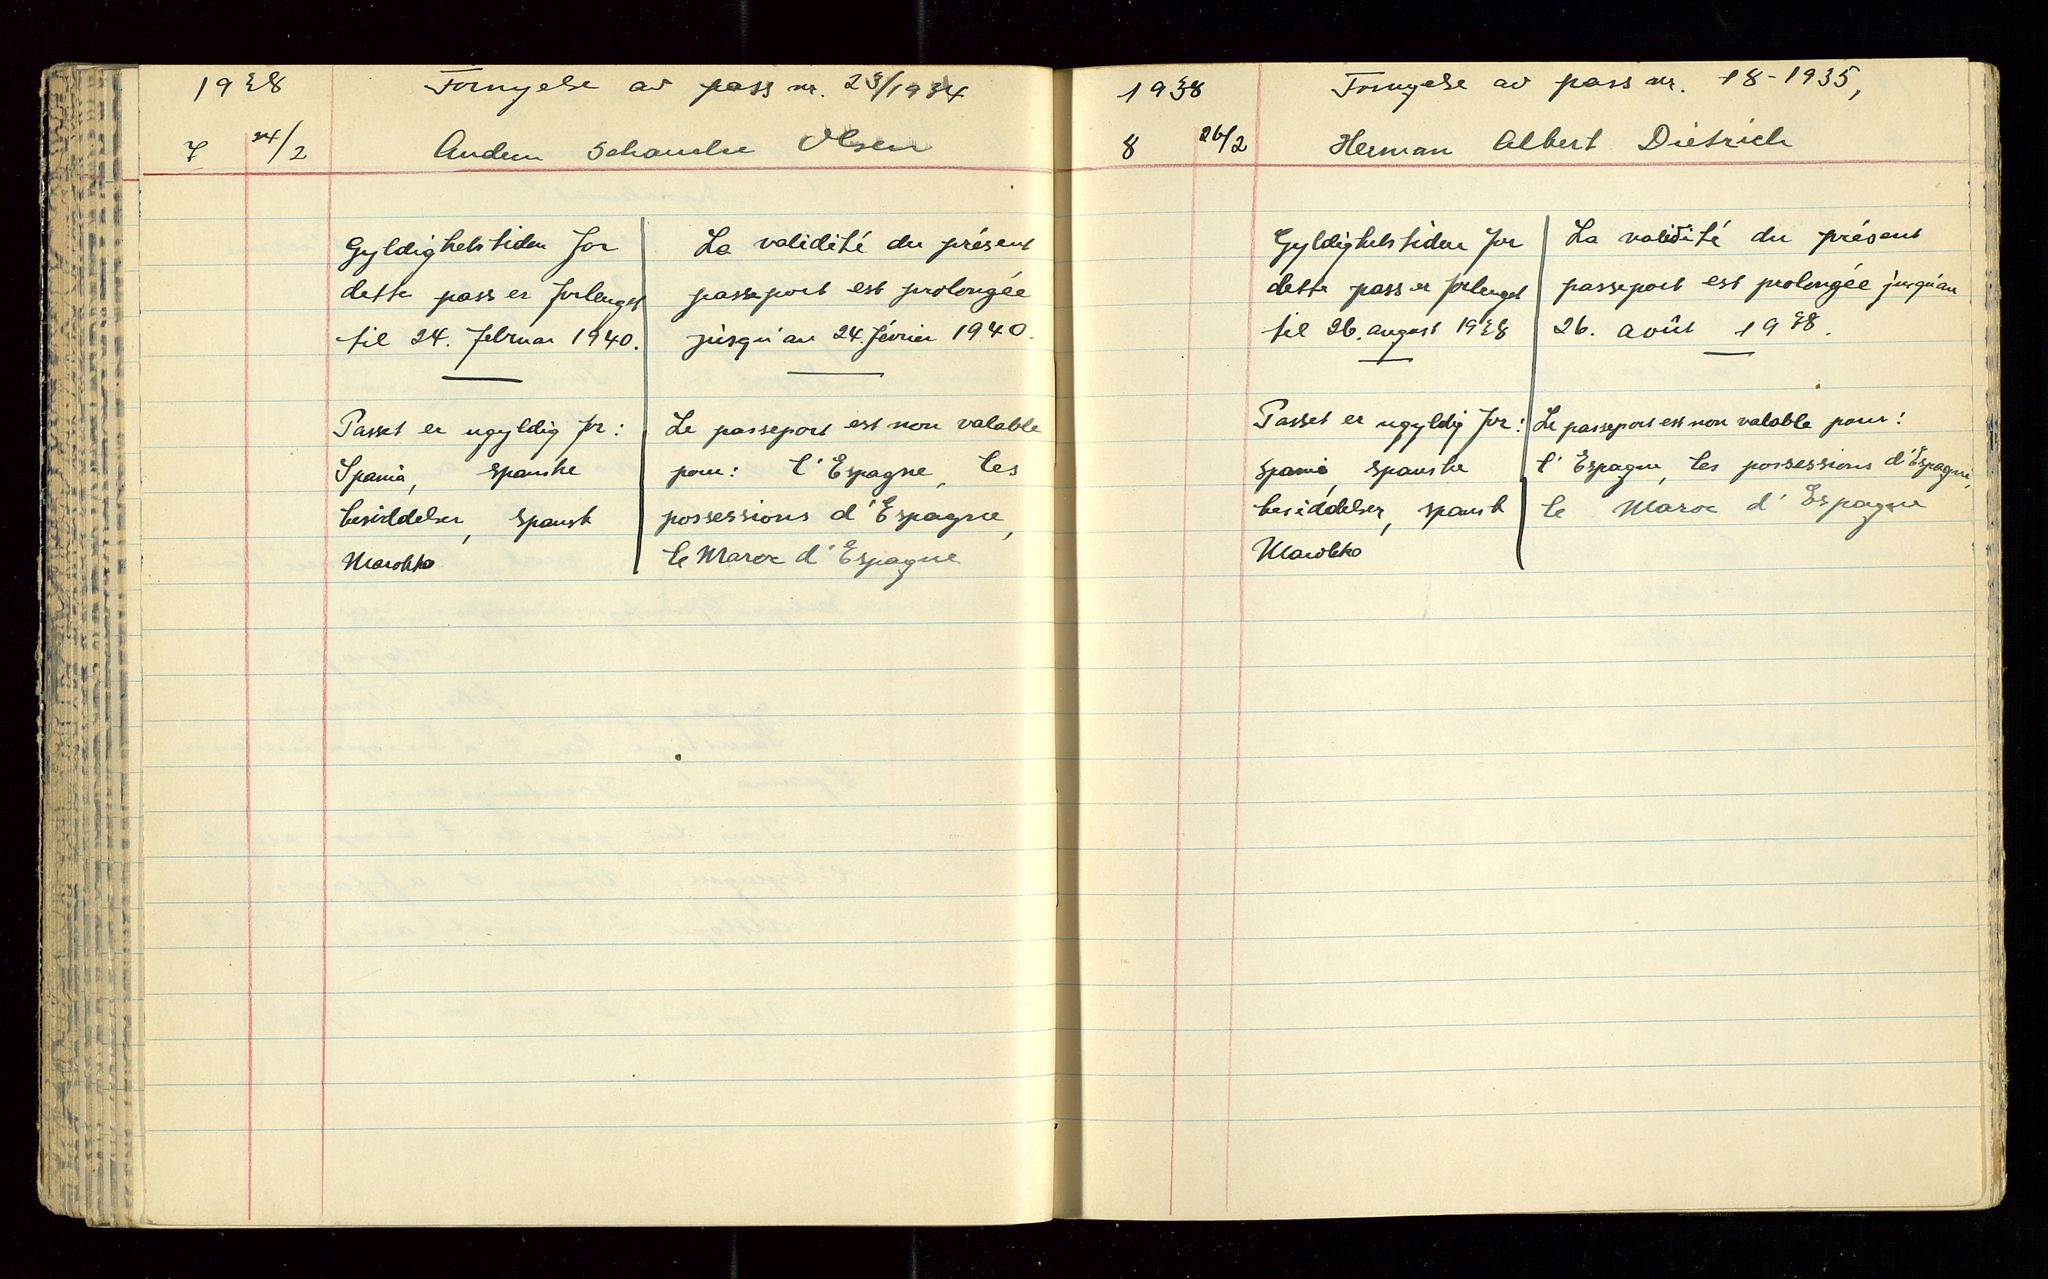 1938
Fornyelse av pass nr. 23/1934
7 24/2
Olsen
Gyldighetstiden for
dette pass er forlenget
til 24. februar 1940.
La validité du présent
passeport est prolongée
jusqu'au 24. février 1940.
Passet er ugyldig for:
Spania, spanske
besiddelser, spansk
Marokko
Le passeport est non valable
pour: l'Espagne, les
possessions d'Espagne,
le Maroc d'Espagne
1938
Fornyelse av pass nr. 18-1935,
8 26/2
Herman Albert Dietrich
Gyldighetstiden for
dette pass er forlenget
til 26. august 1938
La validité du présent
passeport est prolongée jusqu'au
26. août 1938.
Passet er ugyldig for:
Spania, spanske
besiddelser, spansk
Marokko
Le passeport est non valable pour:
l'Espagne, les possessions d'Espagne,
le Maroc d'Espagne